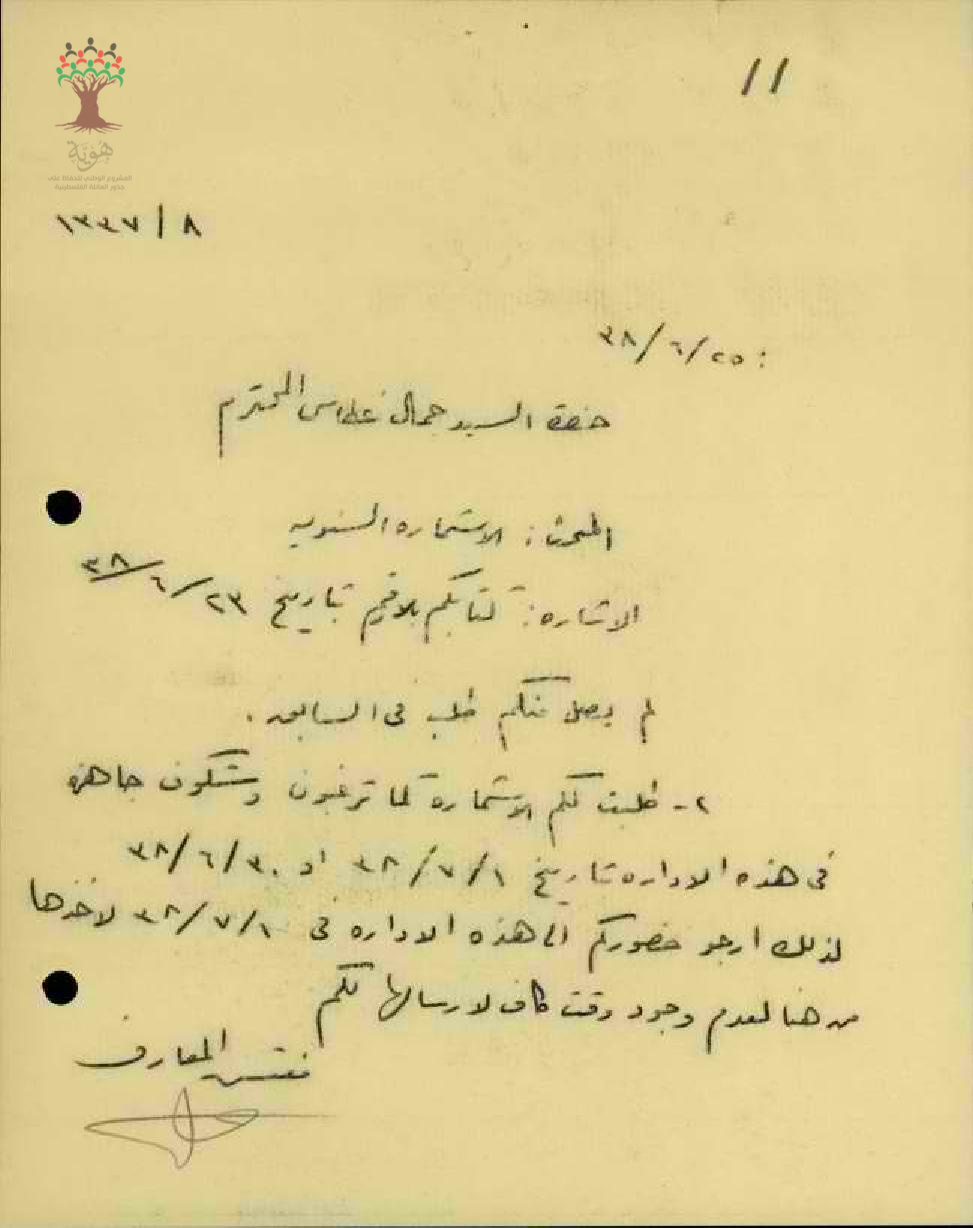 11
هوية
المشروع الوطني للحفاظ على
جذور العائلة الفلسطينية
٨ / ١٣٣٧
: ٢٥/٦/٣٨
حضرة السيد جمال المحترم
المبحث : الاستماره السنويه
الاشاره : كتابكم بلا رقم تاريخ ٢٣/٦/٣٨
لم يصل منكم طلب في السابق .
٢- طلبت لكم الاستمارة كما ترغبون وستكون جاهزه
في هذه الاداره تاريخ ٣٨/٧/١ او ٣٨/٦/٣٠
لذلك ارجو حضوركم الى هذه الاداره في ٣٨/٧/١ لاخذها
من هنا لعدم وجود وقت كاف لارسالها لكم
مفتش المعارف